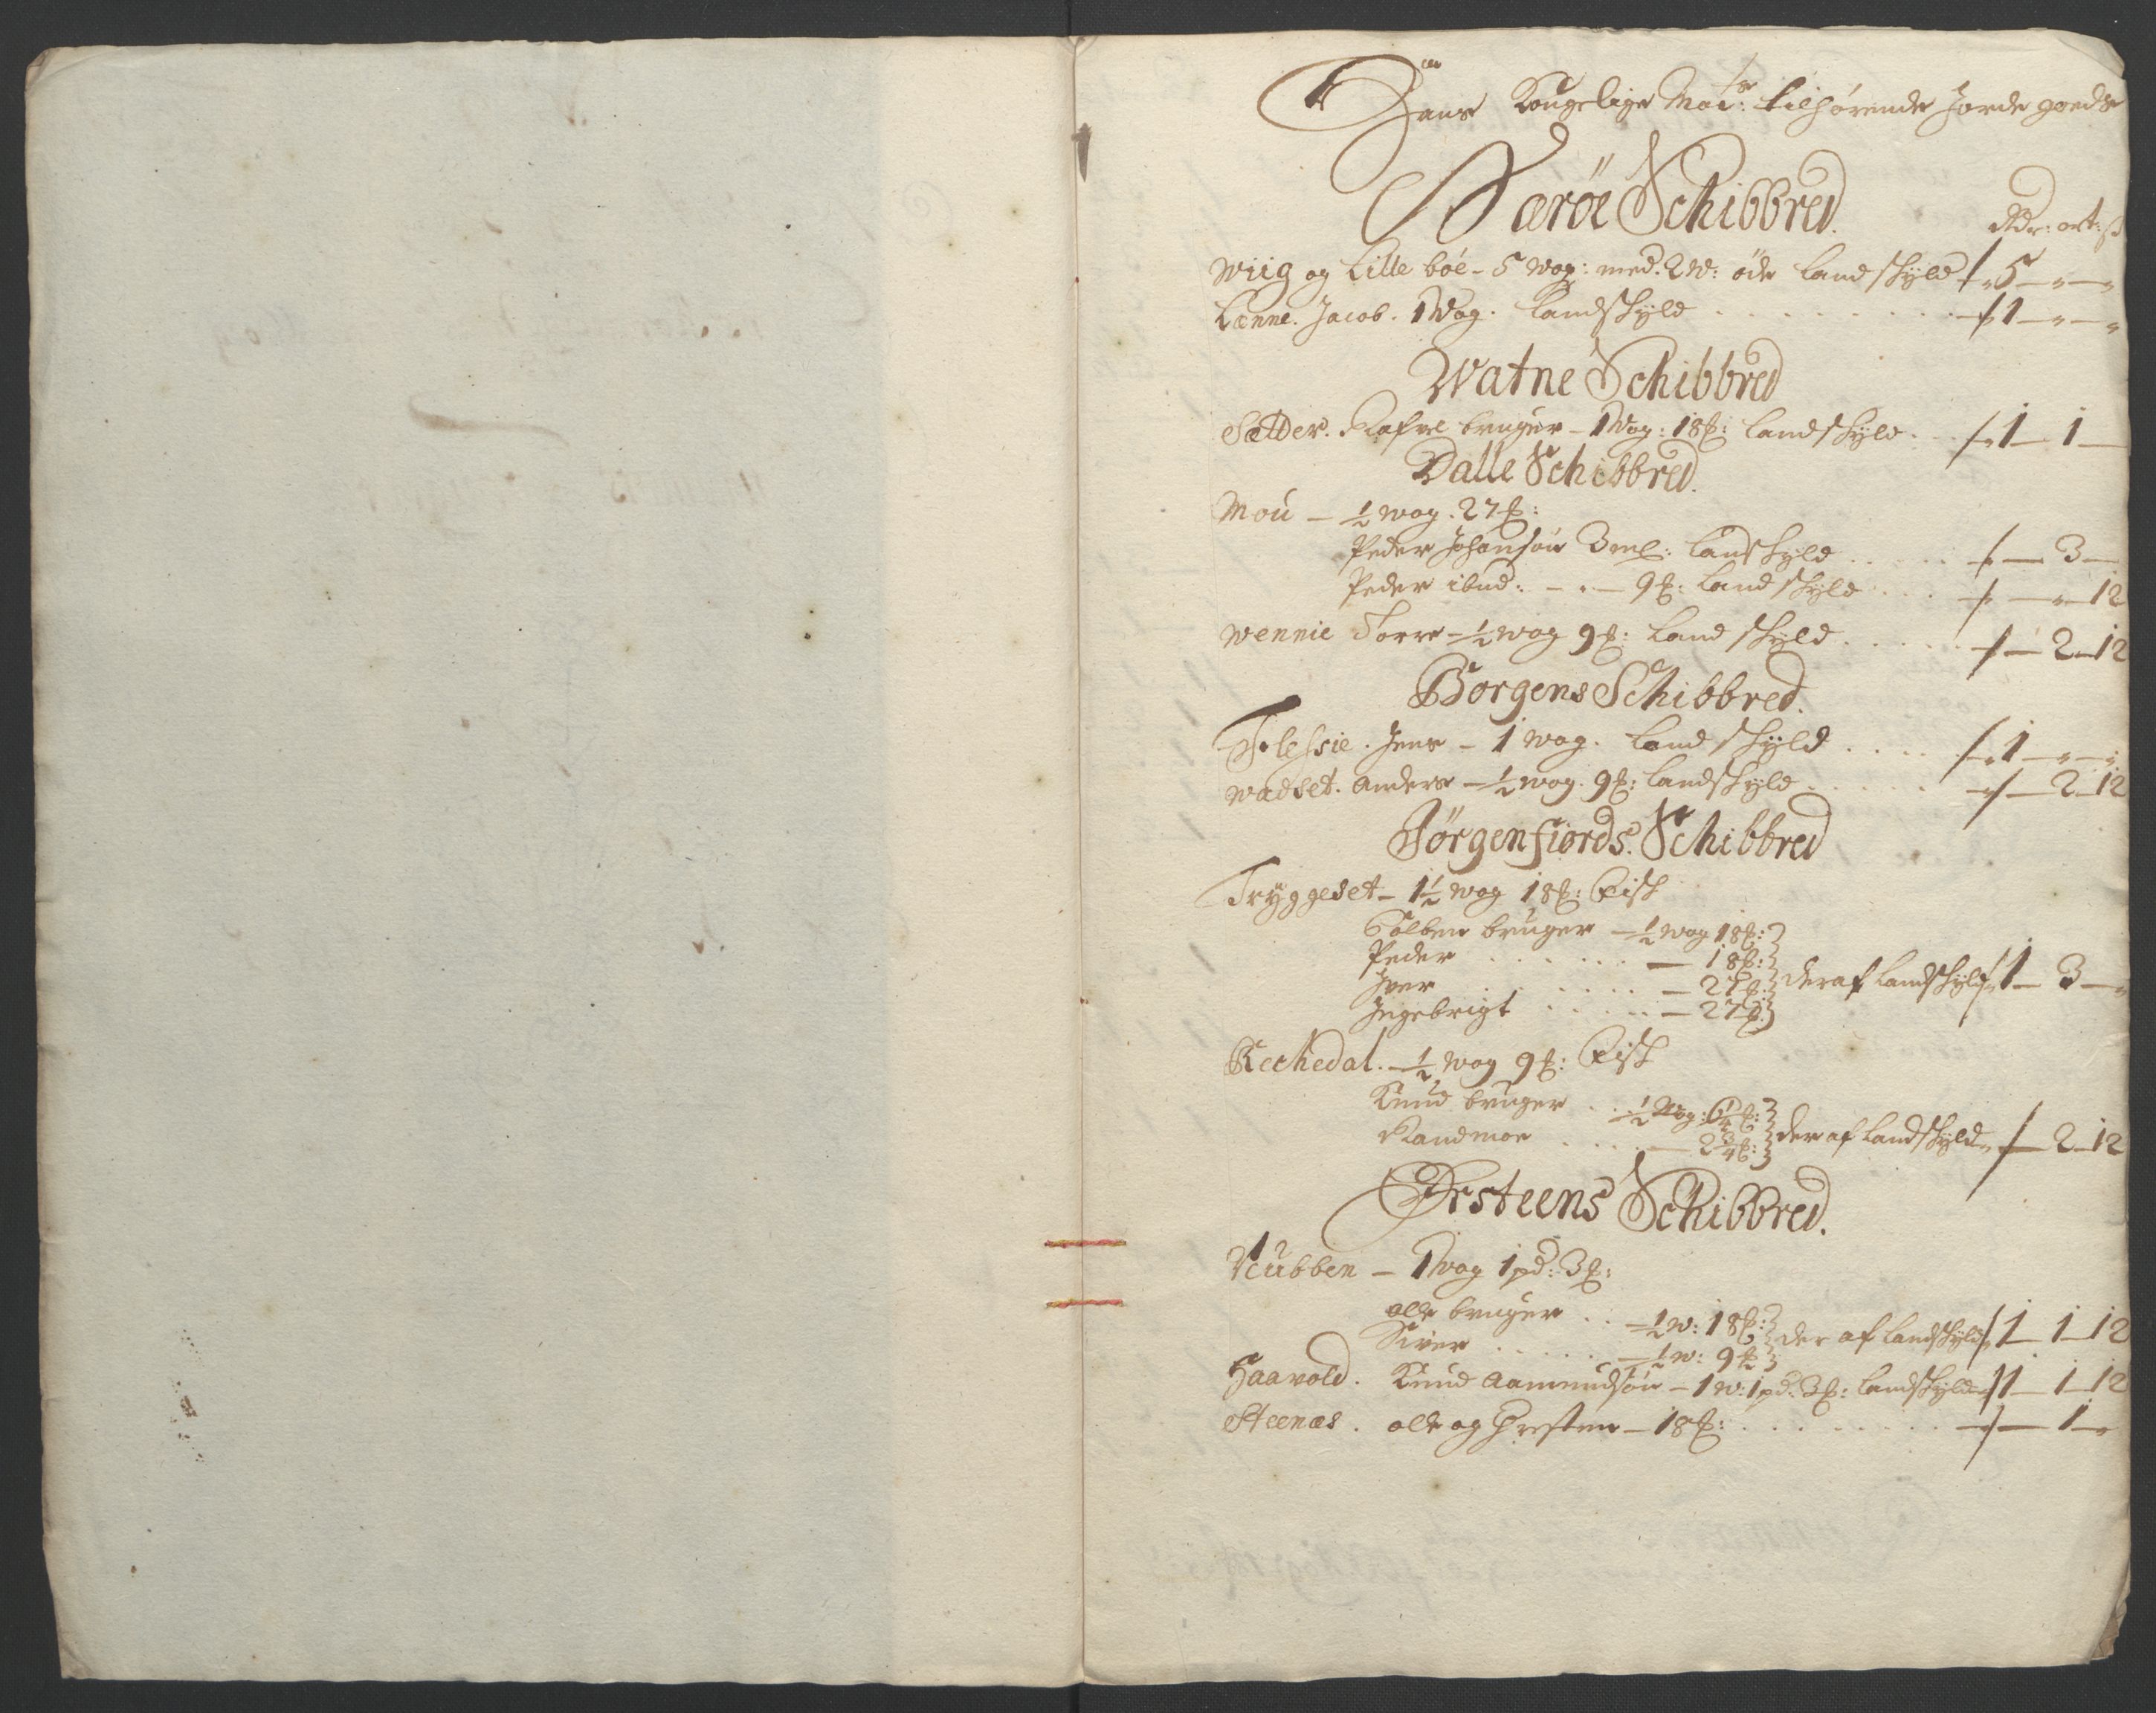 Hans Kongelige Mats: tilhørende Jorde goeds
Herøe Schibbred.
Rdr: ort: ß
Wiig og Lille böe - 5 wog: med 2 w: øde Landskÿld 5 - " - "
Lænne. Jacob. 1 Wog. Landskÿld . . . 1 - " - "
Watne Schibbred
Sætter. Rafvel bruger - 1 Wog: 18 ℔: Landskÿld . . 1 - 1 -
Dalle Schibbred.
Mou - ½ wog. 27 ℔:
Peder Johansøn 3 ml: Landskÿld . . . - 3 -
Peder ibid: - . - 9 ℔: Landskÿld . . . - " - 12
Wennie Torre - ½ wog 9 ℔: Landskÿld . . . - 2 - 12
Borgens Schibbred.
Flessie. Jens - 1 wog. Landskÿld . . . 1 - " - "
Wadset. Anders - ½ wog. 9 ℔: Landskÿld . . . - 2 - 12
Jørgenfiords Schibbred
Tryggeset - 1½ wog 18 ℔: Fisk
Colben bruger - ½ wog 18 ℔:
Peder . . . - 18 ℔:
Iver . . . - 27 ℔:
Ingebrigt . . . - 27 ℔:
deraf Landskÿld 1 - 3 - "
Rechedal. - ½ wog 9 ℔: Fisk
Knud bruger . . ½ Wog: 6¼ ℔:
Randmoe . . . - 2¾ ℔:
der af Landskÿld - 2 - 12
Ørsteens Schibbred.
Nubben - 1 Wog 1 pd: 3 ℔:
olle bruger . . - ½ w: 18 ℔:
Siver . . . - ½ w: 9 ℔
der af Landskÿld 1 - 1 - 12
Haavold. Knud Aamundsøn - 1 w: 1 pd: 3 ℔: Landskÿld 1 - 1 - 12
Steenæs. olle og Chresten - 18 ℔: . . . - 1 - "